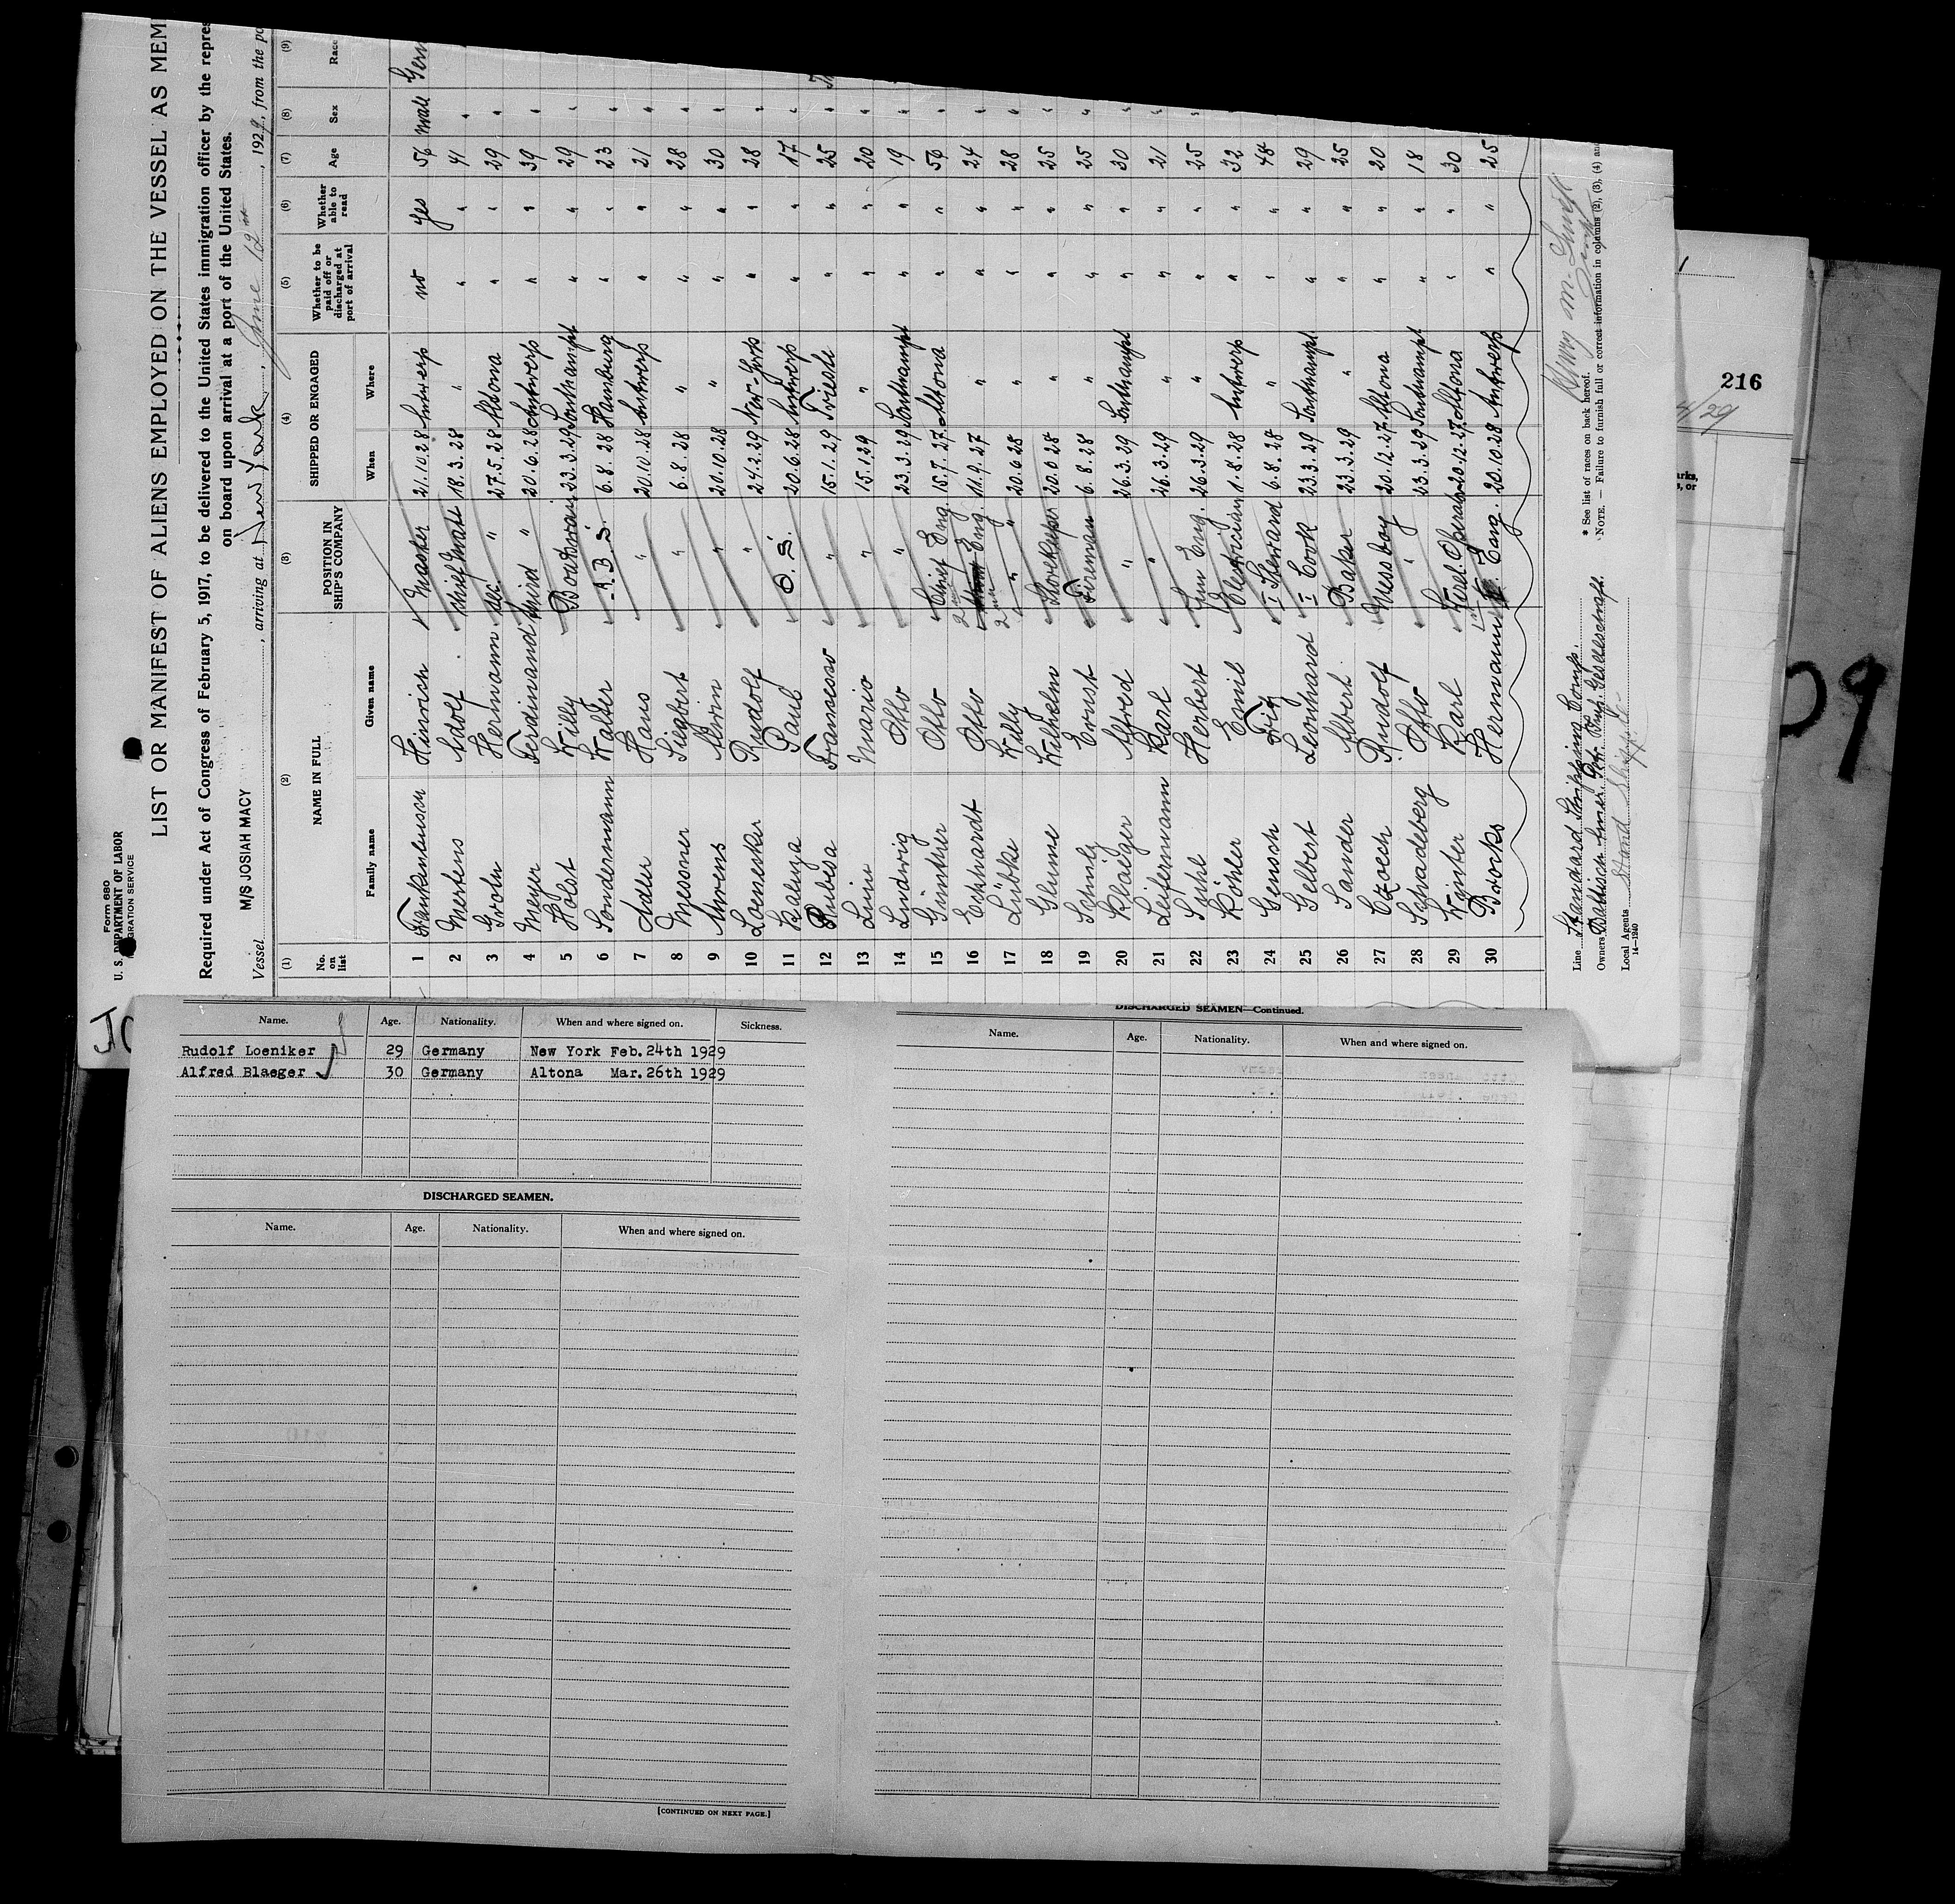 Form 680
U. S. DEPARTMENT OF LABOR
GRATION SERVICE
LIST OR MANIFEST OF ALIENS EMPLOYED ON THE VESSEL AS MEM
Required under Act of Congress of February 5, 1917, to be delivered to the United States immigration officer by the repres
on board upon arrival at a port of the United States.
Vessel M/S JOSIAH MACY, arriving at New York, June 12th, 1929, from the po
(1) (2) (3) (4) (5) (6) (7) (8) (9)
No. on list NAME IN FULL POSITION IN SHIP'S COMPANY SHIPPED OR ENGAGED Whether to be paid off or discharged at port of arrival Whether able to read Age Sex Race
Family name Given name When Where
1 Frankenusen Hinrich Master 21.10.28 Antwerp no yes 56 male Germ
2 Mertens Adolf chief Mate 18.3.28 " " " 41 "
3 Hermann 27.5.28 Altona " " 29 "
4 Meyer Ferdinand third " 20.6.28 Antwerp " " 39 "
5 Holst Willy Boatswain 23.3.29 Southampt " " 29 "
6 Sondermann Walter A. B. S. 6.8.28 Hamburg " " 23 "
7 Adler Hans " 20.10.28 Antwerp " " 21 "
8 Messner Siegbert " 6.8.28 " " " 28 "
9 Ahrens Alwin " 20.10.28 " " " 30 "
10 Loenesker Rudolf " 24.2.29 New-York " " 28 "
11 Kaluza Paul O. S. 20.6.28 Antwerp " " 17 "
12 Pubesa Francesco " 15.1.29 Trieste " " 25 "
13 Mario " 15.1.29 " " " 20 "
14 Ludwig Otto " 23.3.29 Southampt " " 19 "
15 Günther Otto Chief Eng. 15.7.27 Altona " " 56 "
16 Eckhardt Otto 2nd Eng. 11.9.27 " " " 24 "
17 Lübke Willy 2nd " 20.6.28 " " " 28 "
18 Wilhelm Storekeeper 28 " " " 25 "
19 Ernst Fireman 6.8.28 " " " 25 "
20 Blaeger Alfred " 26.3.29 Southampt " " 30 "
21 Leifermann Karl " 26.3.29 " " " 21 "
22 Herbert Eng. 26.3.29 " " " 25 "
23 Köhler Emil Electrician 1.8.28 Antwerp " " 32 "
24 Gensch I Steward 6.8.28 " " " 48
25 Gelbert Leonhard I Cook 23.3.29 Southampt " " 29
26 Sander Albert Baker 23.3.29 " " " 25
27 Czoech Rudolf Messboy 20.12.27 Altona " " 20
28 Schadeberg Otto " 23.3.29 Southampt " " 18
29 Winter Karl Operator 20.12.27 Altona " " 30
30 Brocks Hermann Eng. 20.10.28 Antwerp " " 25
Line Standard Shipping Comp.
Owners Baltisch Amer. Petr. Imp. Gesellschaft.
Local Agents Stand Shipp
14—1240
* See list of races on back hereof.
NOTE. — Failure to furnish full or correct information in columns (2), (3), (4) and
216
4/29
09
arks,
s, or
Name. Age. Nationality. When and where signed on. Sickness.
Rudolf Loeniker 29 Germany New York Feb.24th 1929
Alfred Blaeger 30 Germany Altona Mar.26th 1929
DISCHARGED SEAMEN.
Name. Age. Nationality. When and where signed on.
[CONTINUED ON NEXT PAGE.]
DISCHARGED SEAMEN—Continued.
Name. Age. Nationality. When and where signed on.